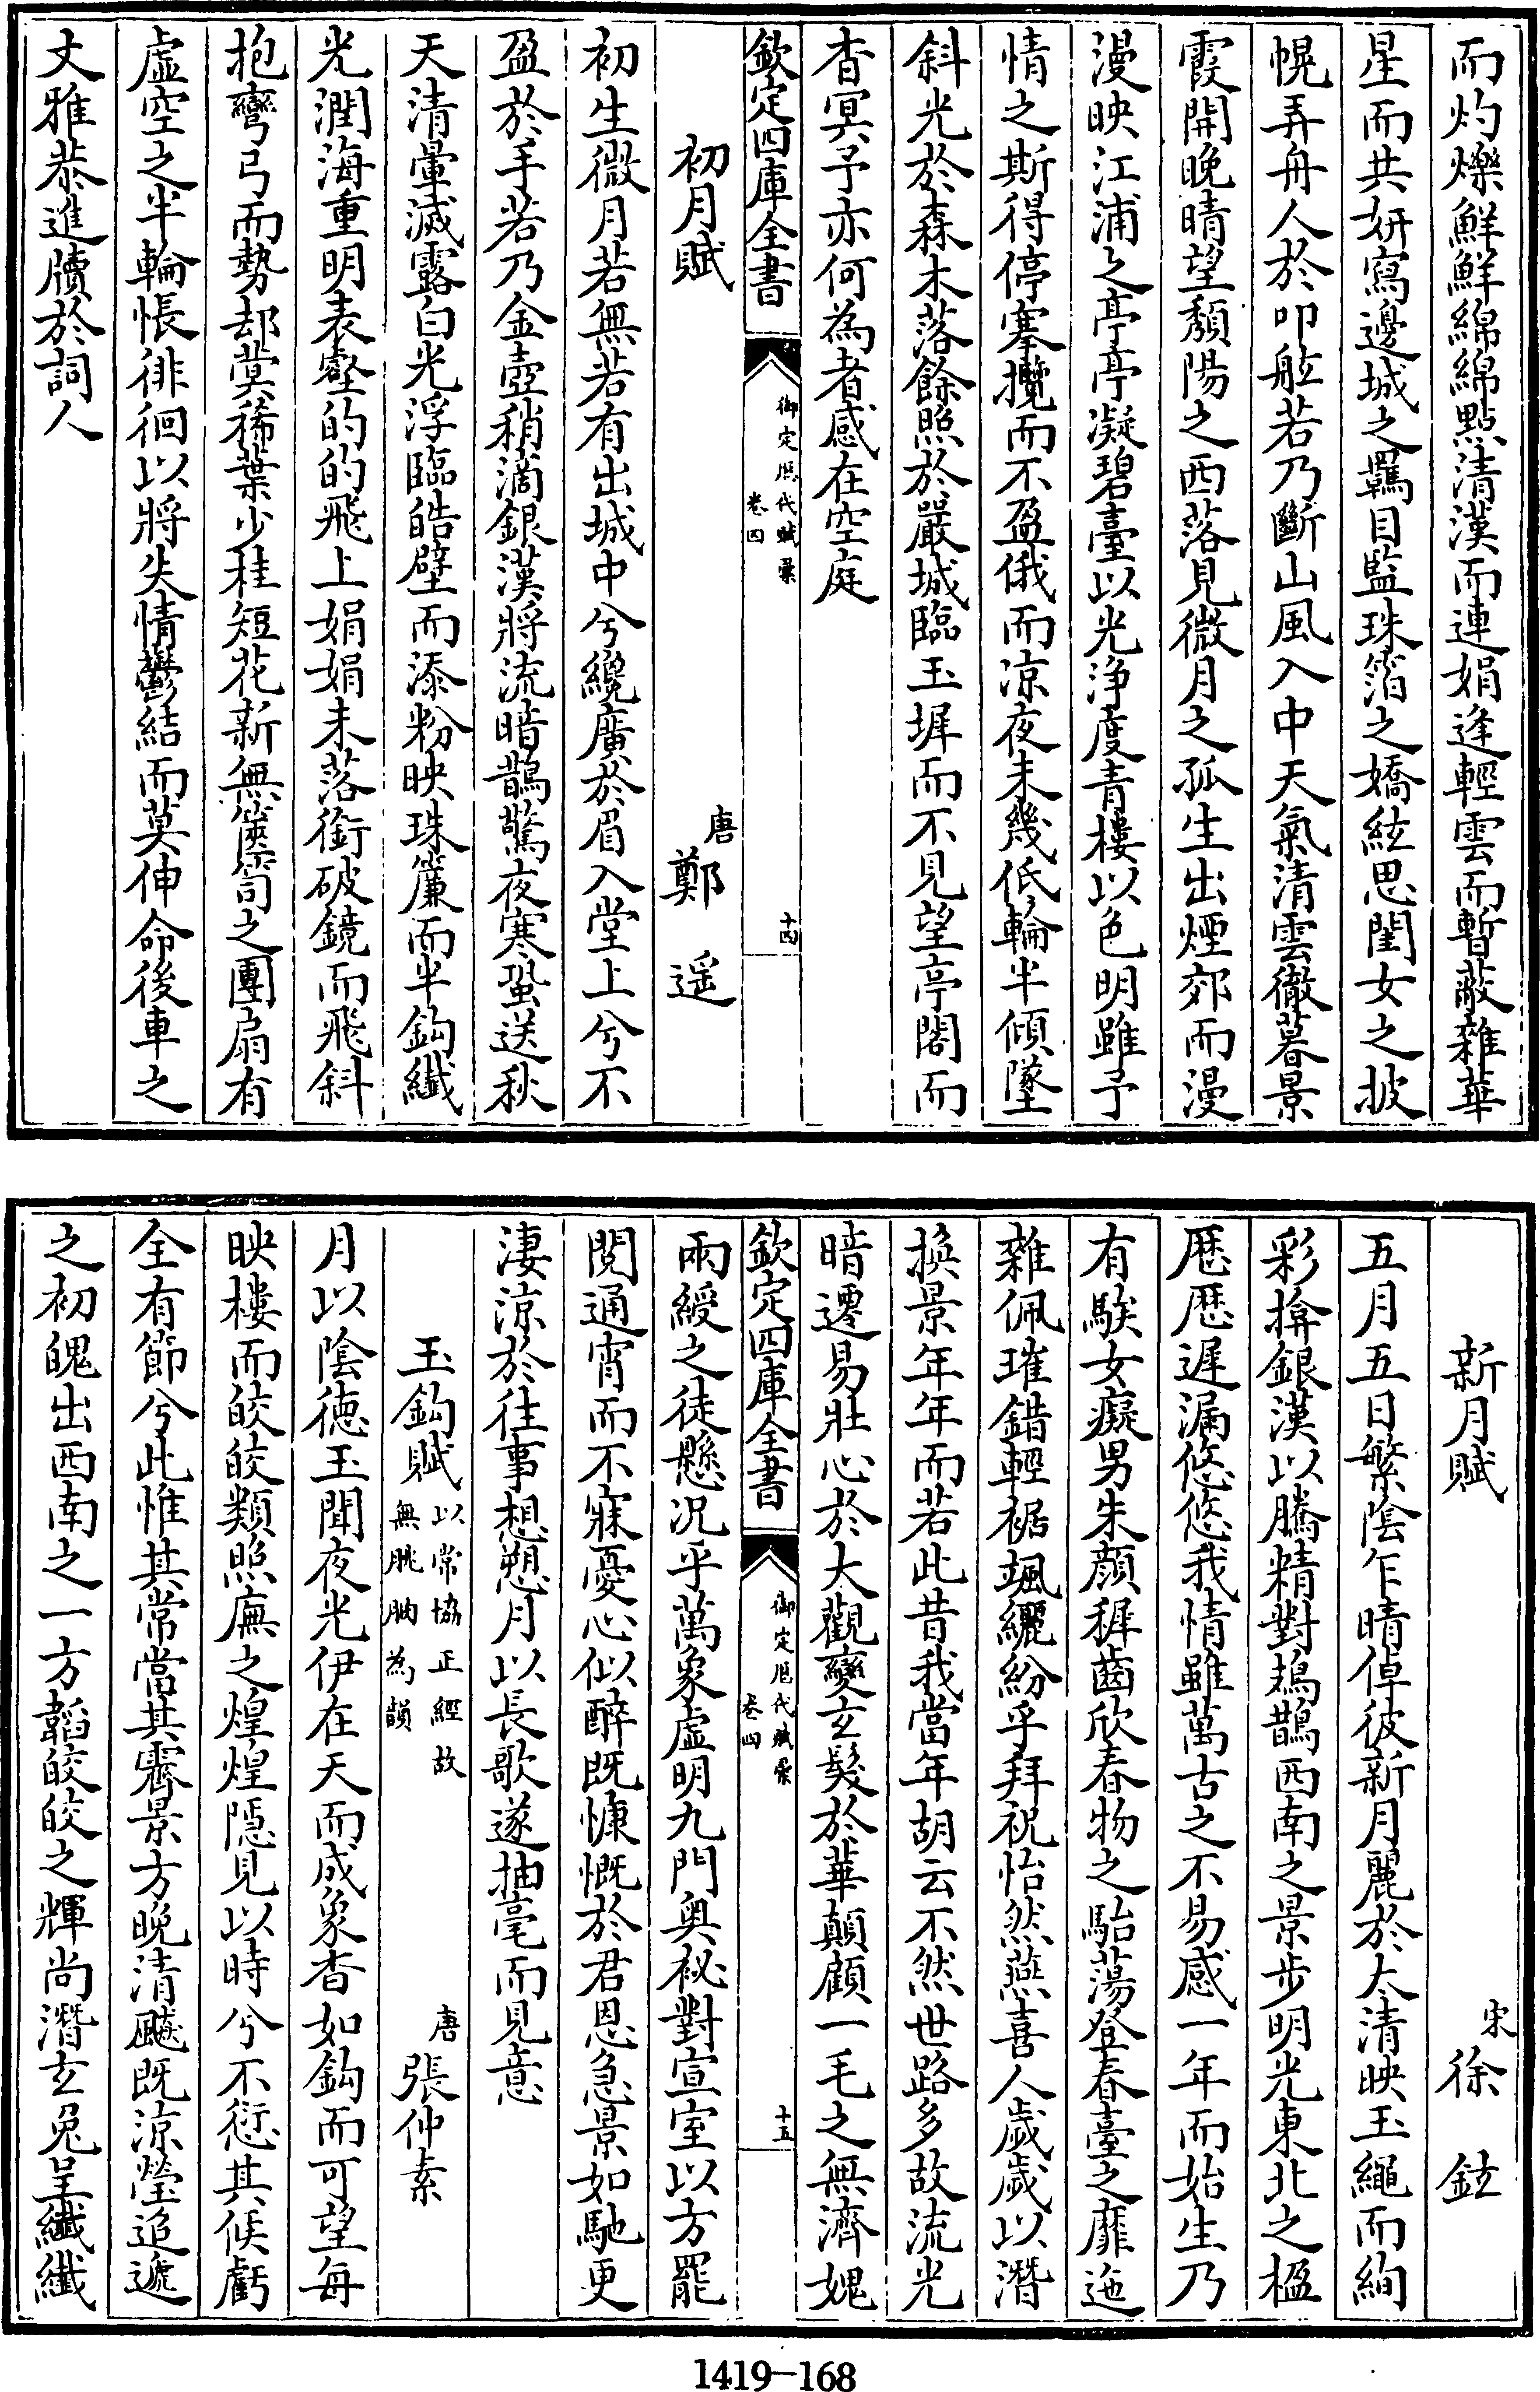 而灼爍鮮鮮綿綿點清漢而連娟逢輕雲而暫蔽雜華
星而共姸寫邊城之羈目監珠箔之嬌絃思閨女之披
幌弄舟人於叩舷若乃斷山風入中天氣清雲徹暮景
霞開晚晴望頹陽之西落見微月之孤生出煙郊而漫
漫映江浦之亭亭凝碧臺以光淨度青樓以色明雖予
情之斯得停搴攬而不盈俄而涼夜未幾低輪半傾墜
斜光於森木落餘照於嚴城臨玉墀而不見望亭閣而
杳冥予亦何為者感在空庭
欽定四庫全書
御定歴代賦彙
卷四
十四
初月賦
唐
鄭遥
初生微月若無若有出城中兮纔廣於眉入堂上兮不
盈於手若乃金壺稍滴銀漢將流暗鵲驚夜寒蛩送秋
天清暈滅露白光浮臨皓壁而添粉映珠簾而半鈎纖
光潤海重明表壑的的飛上娟娟未落銜破鏡而飛斜
抱彎弓而勢却蓂稀葉少桂短花新無篋笥之團扇有
虛空之半輪悵徘徊以將失情鬱結而莫伸命後車之
丈雅恭進牘於詞人
新月賦
宋
徐鉉
五月五日繁陰乍晴倬彼新月麗於太清映玉繩而絢
彩揜銀漢以騰精對鳷鵲西南之景步明光東北之楹
歴歴遲漏悠悠我情雖萬古之不易感一年而始生乃
有騃女癡男朱顔穉齒欣春物之駘蕩登春臺之靡迤
雜佩璀錯輕裾颯纚紛乎拜祝怡然燕喜人歲歲以潛
換景年年而若此昔我當年胡云不然世路多故流光
暗遷易壯心於大觀變玄髮於華顛顧一毛之無濟媿
欽定四庫全書
御定歴代賦彙
卷四
十五
兩綬之徒懸况乎萬象虛明九門奥祕對宣室以方罷
閱通宵而不寐憂心似醉既慷慨於君恩急景如馳更
淒涼於往事想愬月以長歌遂抽毫而見意
玉鈎賦
以常協正經故
無朓朒為韻
唐
張仲素
月以陰德玉聞夜光伊在天而成象杳如鈎而可望每
映樓而皎皎類照廡之煌煌隱見以時兮不愆其候虧
全有節兮此惟其常當其霽景方晚清飈既涼瑩迢遞
之初魄出西南之一方韜皎皎之輝尚潛玄兔呈纖纖
1419—168